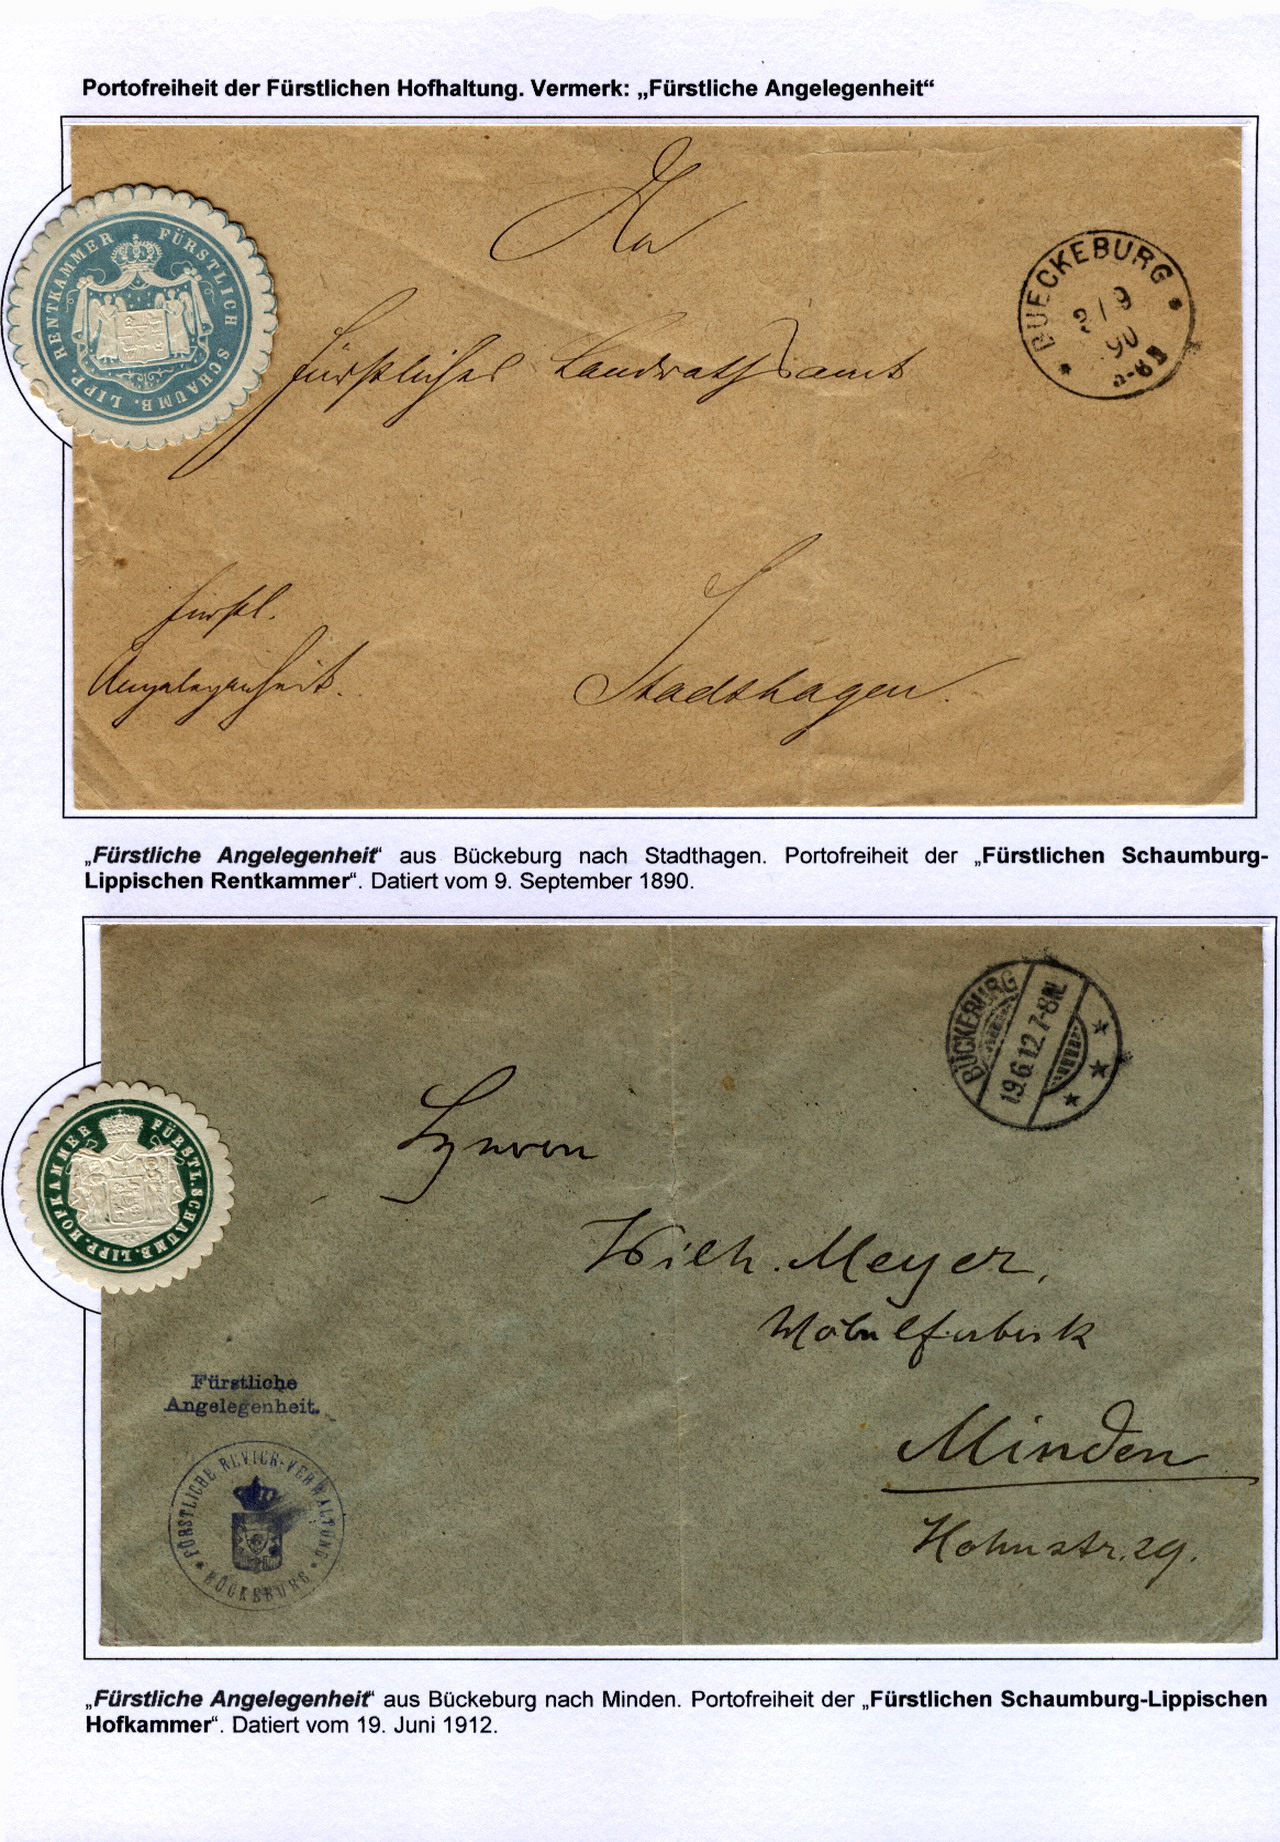 Portofreiheit der Fürstlichen Hofhaltung. Vermerk: „Fürstliche Angelegenheit“
RENTKAMMER FÜRSTLICH SCHAUMB. LIPP.
An
Fürstliches Landrathsamt
* BUECKEBURG *
9
90
Fürstl.
Angelegenheit.
Stadthagen.
„Fürstliche Angelegenheit“ aus Bückeburg nach Stadthagen. Portofreiheit der „Fürstlichen Schaumburg-
Lippischen Rentkammer“. Datiert vom 9. September 1890.
BÜCKEBURG
19.6.12.7-8N.
FÜRSTL. SCHAUMB. LIPP. HOFKAMMER
Herren
Wilh. Meyer,
Möbelfabrik
Minden
Hohnstr. 29.
Fürstliche
Angelegenheit.
FÜRSTLICHE REVIER-VERWALTUNG
* BÜCKEBURG *
„Fürstliche Angelegenheit“ aus Bückeburg nach Minden. Portofreiheit der „Fürstlichen Schaumburg-Lippischen
Hofkammer“. Datiert vom 19. Juni 1912.